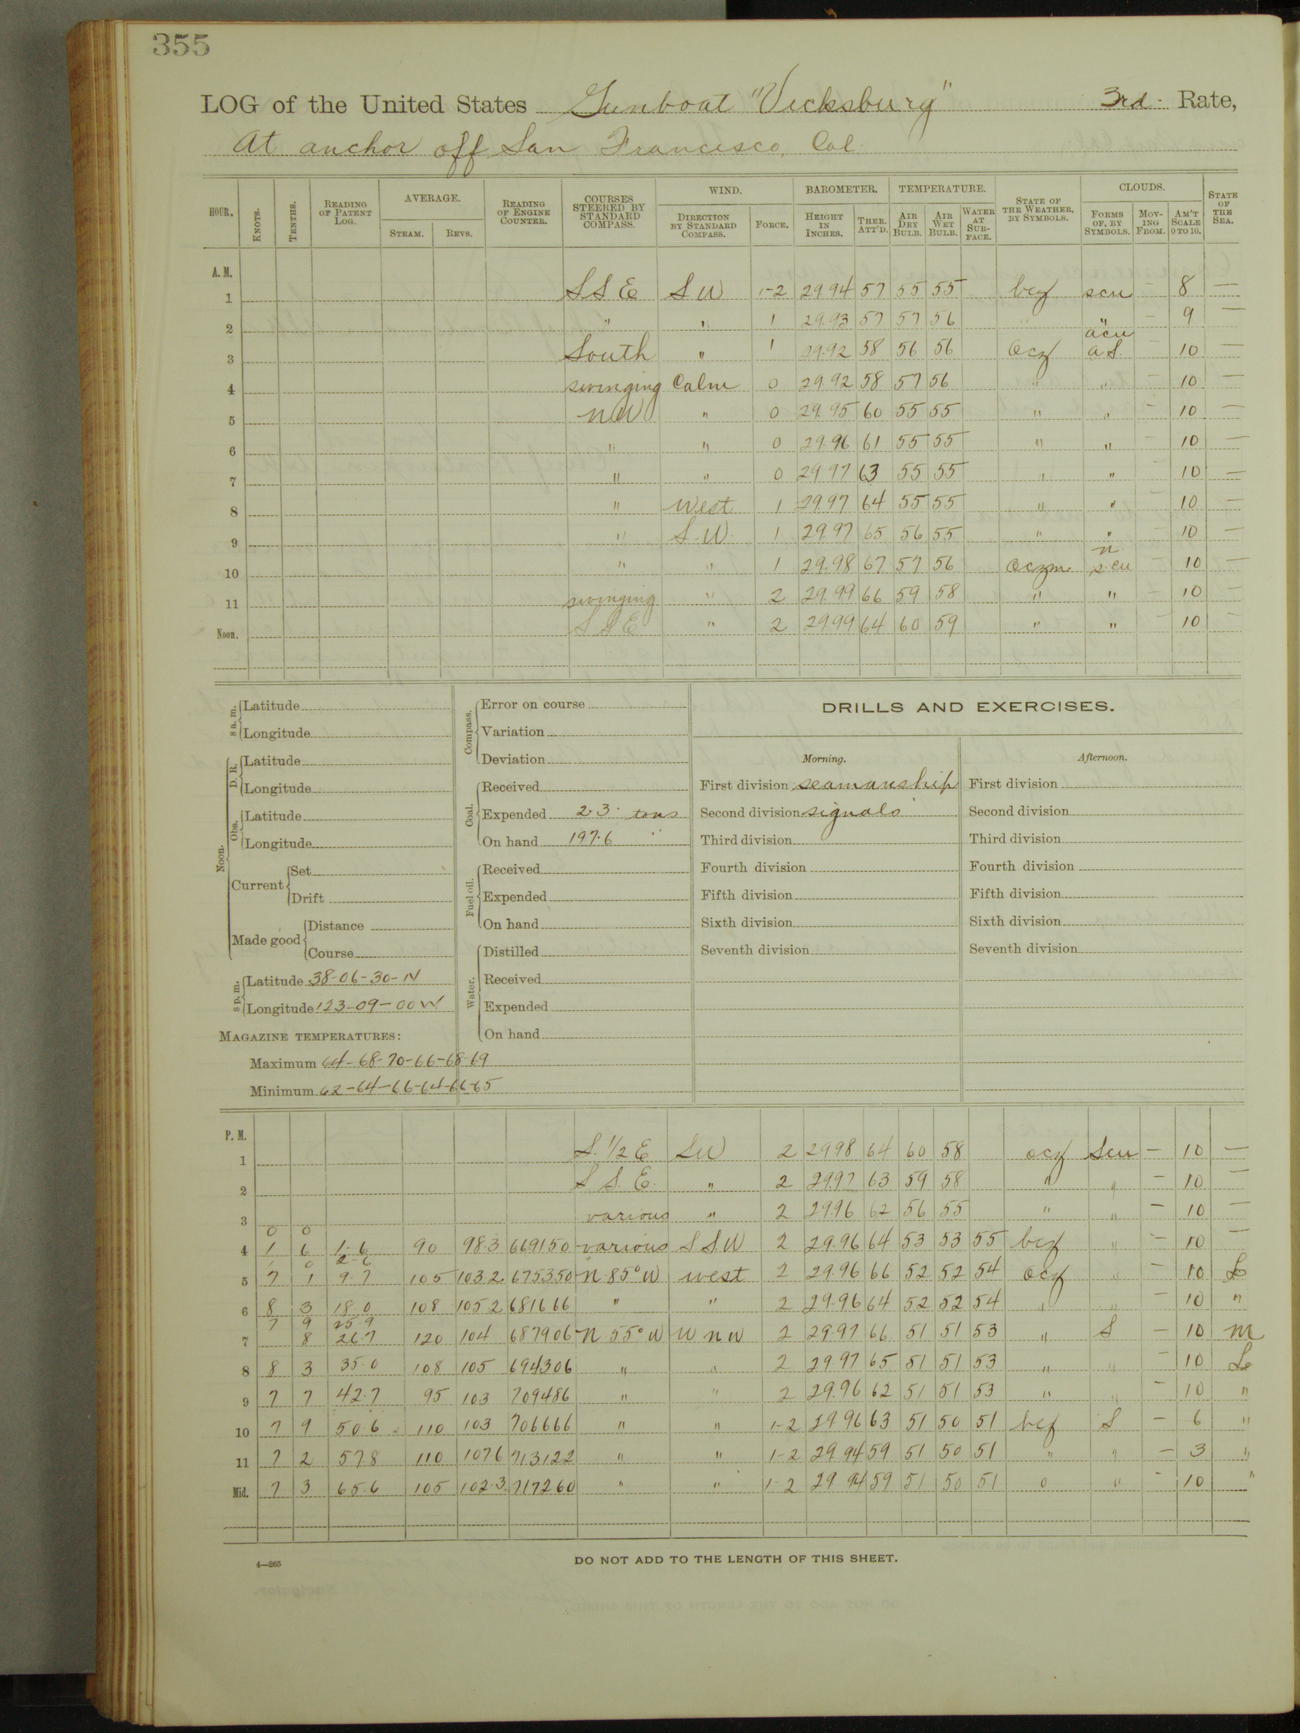 355
LOG of the United States Gunboat "Vicksburg" 3rd Rate,
At anchor off San Francisco, Cal
HOUR. KNOTS. TENTHS. READING OF PATENT LOG. AVERAGE. STEAM. REVS. READING OF ENGINE COUNTER. COURSES STEERED BY STANDARD COMPASS. WIND. DIRECTION BY STANDARD COMPASS. FORCE. BAROMETER. HEIGHT IN INCHES. THER. ATT'D. TEMPERATURE. AIR DRY BULB. AIR WET BULB. WATER AT SURFACE. STATE OF THE WEATHER, BY SYMBOLS. CLOUDS. FORMS OF, BY SYMBOLS. MOVING FROM. AM'T SCALE 0 TO 10. STATE OF THE SEA.
A. M.
1 SSE SW 1-2 29.94 57 55 55 bcz scu - 8 -
2 " " 1 29.93 57 57 56 " " - 9 -
acu
3 South " 1 29.92 58 56 56 ocz a.s. - 10 -
4 swinging Calm 0 29.92 58 57 56 " " - 10 -
5 NW " 0 29.95 60 55 55 " " - 10 -
6 " " 0 29.96 61 55 55 " " - 10 -
7 " " 0 29.97 63 55 55 " " - 10 -
8 " West 1 29.97 64 55 55 " " - 10 -
9 " S.W. 1 29.97 65 56 55 " " - 10 -
n
10 " " 1 29.98 67 57 56 oczm s.cu - 10 -
11 swinging " 2 29.99 66 59 58 " " - 10 -
Noon. SSE " 2 29.99 64 60 59 " " - 10 -
8 a. m. Latitude
Longitude
Noon. D. R. Latitude
Longitude
Obs. Latitude
Longitude
Current Set
Drift
Made good Distance
Course
8 p. m. Latitude 38-06-30-N
Longitude 123-09-00W
MAGAZINE TEMPERATURES:
Maximum 64-68-70-66-68-69
Minimum 62-64-66-64-66-65
Compass. Error on course
Variation
Deviation
Coal. Received
Expended 2.3 tons
On hand 197.6 "
Fuel oil. Received
Expended
On hand
Water. Distilled
Received
Expended
On hand
DRILLS AND EXERCISES.
Morning.
First division seamanship
Second division signals
Third division
Fourth division
Fifth division
Sixth division
Seventh division
Afternoon.
First division
Second division
Third division
Fourth division
Fifth division
Sixth division
Seventh division
P. M.
1 S. 1/2 E SW 2 29.98 64 60 58 ocz Scu - 10 -
2 S.S.E. " 2 29.97 63 59 58 " " - 10 -
3 various " 2 29.96 62 56 55 " " - 10 -
0 0
4 1 6 1.6 90 98.3 669150 various SSW 2 29.96 64 53 53 55 bcz " - 10 -
0 2.6
5 7 1 9.7 105 103.2 675350 N 85° W west 2 29.96 66 52 52 54 ocz " - 10 L
6 8 3 18.0 108 105.2 681666 " " 2 29.96 64 52 52 54 " " - 10 "
7 9 25.9
7 8 26.7 120 104 687906 N 55° W WNW 2 29.97 66 51 51 53 " S - 10 M
8 8 3 35.0 108 105 694306 " " 2 29.97 65 51 51 53 " " - 10 L
9 7 7 42.7 95 103 709486 " " 2 29.96 62 51 51 53 " " - 10 "
10 7 9 50.6 110 103 706666 " " 1-2 29.96 63 51 50 51 bcf S - 6 "
11 7 2 57.8 110 107.6 713122 " " 1-2 29.94 59 51 50 51 " " - 3 "
Mid. 7 3 65.6 105 102.3 717260 " " 1-2 29.94 59 51 50 51 o " - 10 "
4—265
DO NOT ADD TO THE LENGTH OF THIS SHEET.